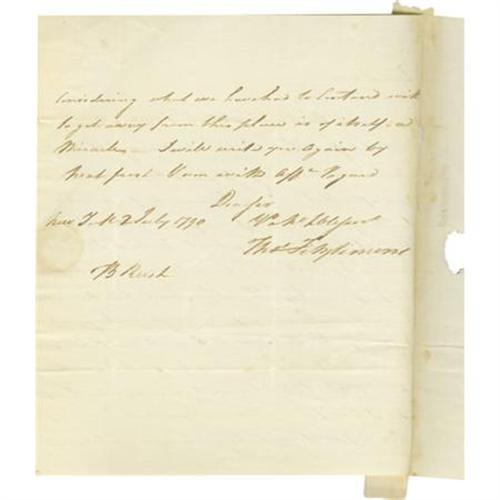 Considering what we have had to Contend with
to get away from this place is of itself a
Miracle - I will write you again by
next post I am with affte Regard
Dear sir
New York 2 July 1790
Thos FitzSimons
B Rush